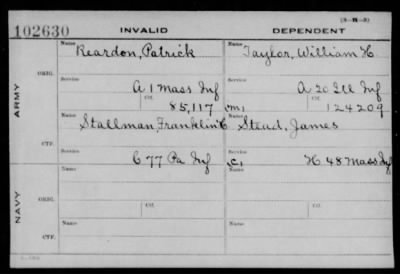 (3-H-3)
102630 INVALID DEPENDENT
Name Name
Reardon, Patrick Taylor, William H
ORIG.
Service Service
A 1 Mass Inf A 20 Ill Inf
Ctf. Ctf.
85,117 m1 124209
ARMY
Name Name
Stallman, Franklin C Stead, James
CTF.
Service Service
C 77 Pa Inf C1 H 48 Mass Inf
Name Name
ORIG.
Ctf. Ctf.
NAVY
Name Name
CTF.